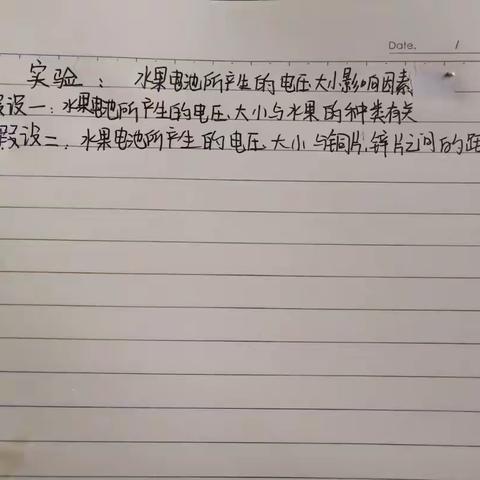 Date. /
实验：水果电池所产生的电压大小影响因素
设一：水果电池所产生的电压大小与水果的种类有关
假设二、水果电池所产生的电压大小与铜片、锌片之间的距